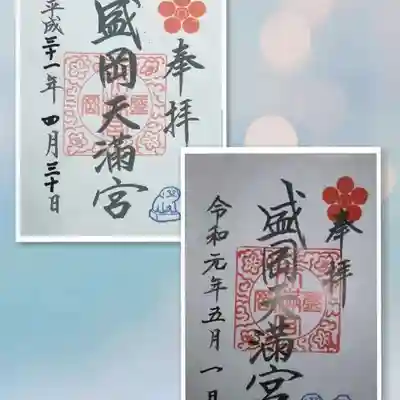 奉拝
盛岡天満宮
平成三十一年四月三十日
奉拝
盛岡天満宮
令和元年五月一日